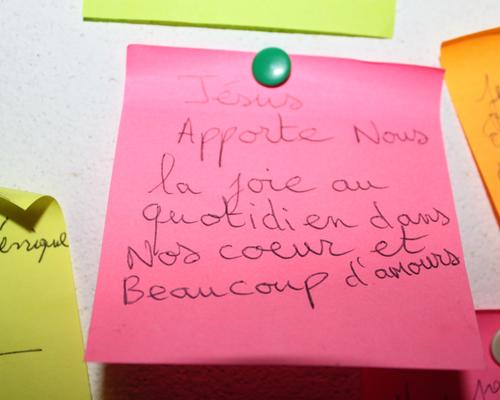 Jésus
Apporte Nous
la joie au
quotidien dans
Nos coeur et
Beaucoup d'amours